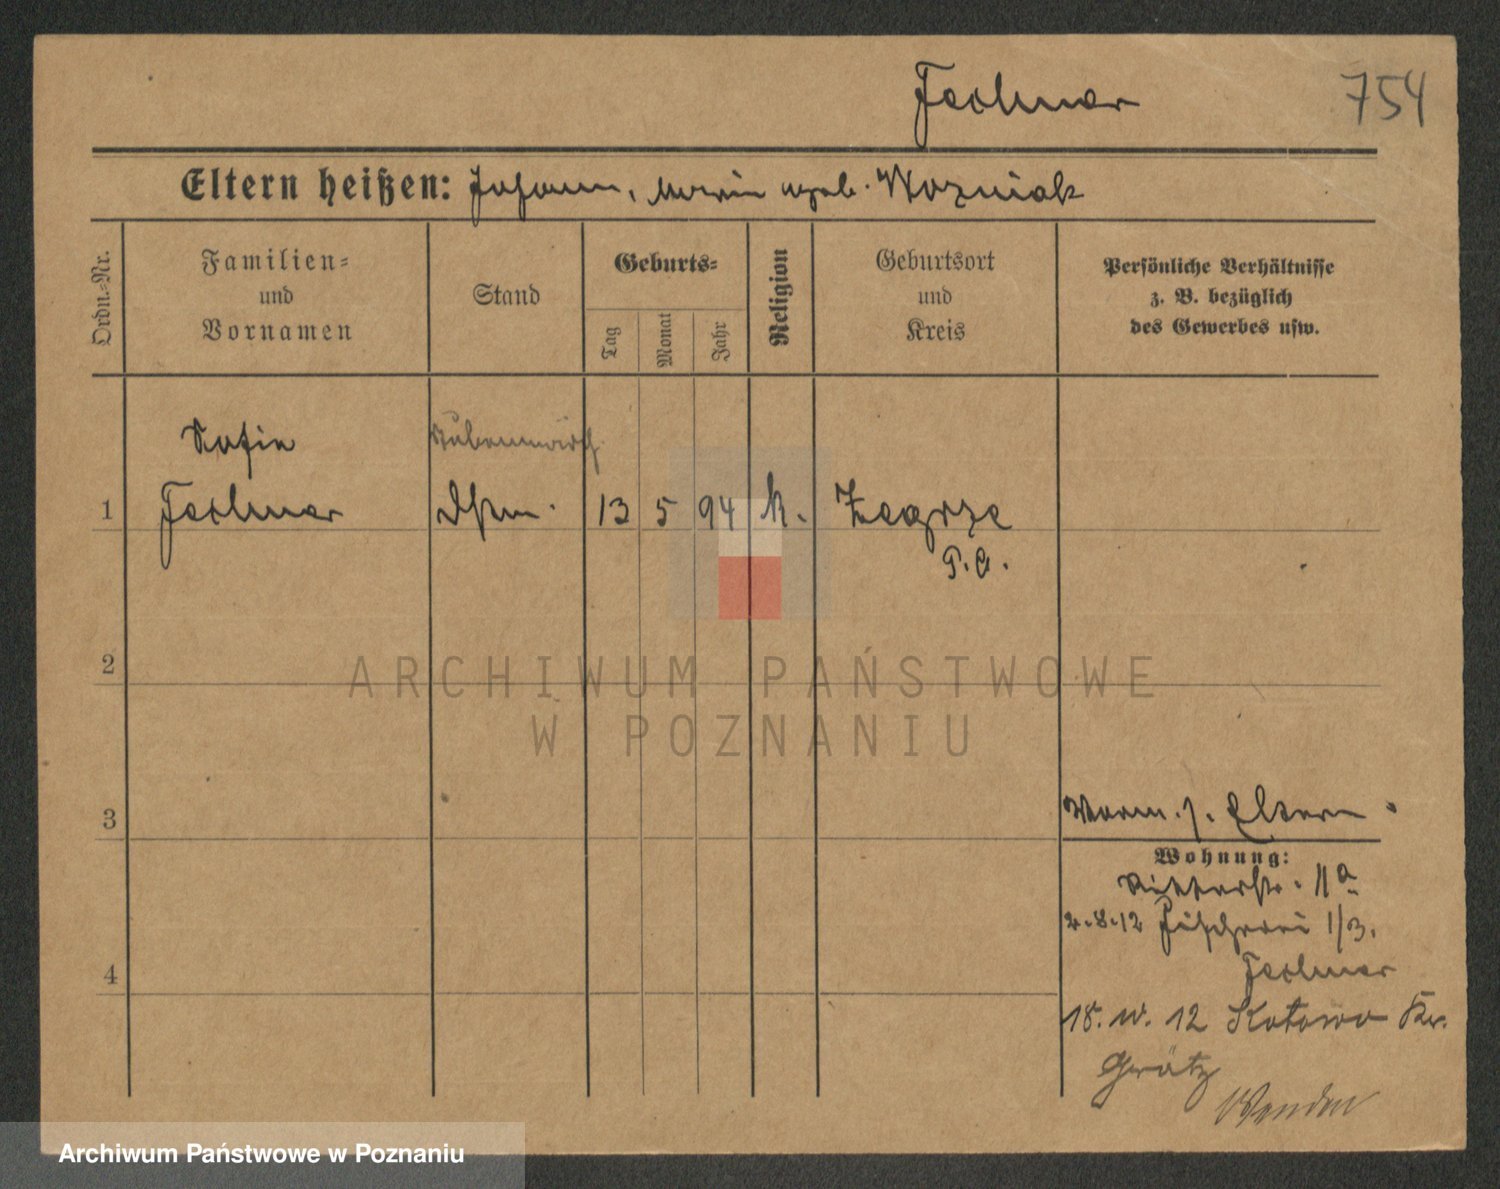 Feckner 754
Eltern heißen: Johann, Marie geb. Wozniak
Ordn.=Nr.
Familien=
und
Vornamen
Stand
Geburts=
Tag
Monat
Jahr
Religion
Geburtsort
und
Kreis
Persönliche Verhältnisse
z. B. bezüglich
des Gewerbes usw.
Sofie
1 13 5 94 k. Zegrze
P. O.
2
ARCHIWUM PAŃSTWOWE
W POZNANIU
3
Eltern
Wohnung:
Ritterstr. 11a
2.8.12 Fischerei 1/3.
4
18. 12 Kotowo Kr.
Grätz
Wenden
Archiwum Państwowe w Poznaniu